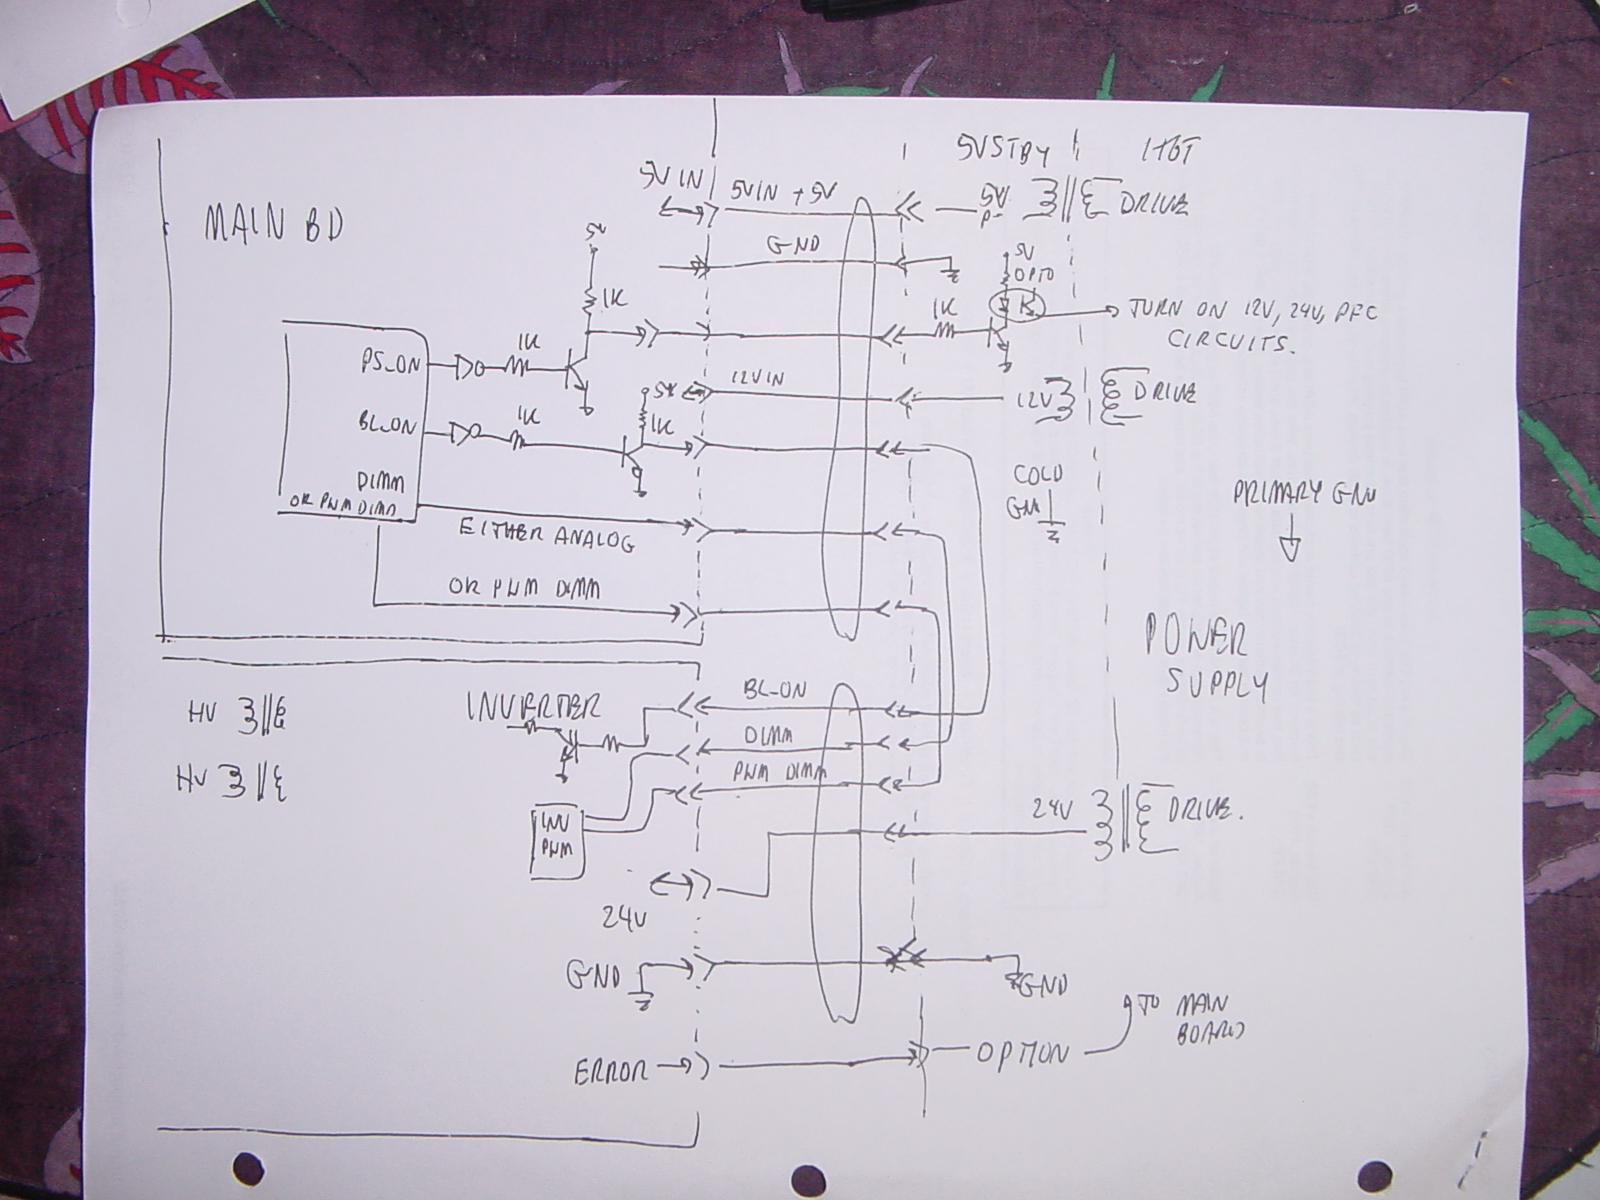 5VSTBY
HOT
5V IN
5VIN +5V
5V
DRIVE
MAIN BD
GND
5V
5V
OPTO
1K
1K
TURN ON 12V, 24V, PFC
CIRCUITS.
PS_ON
1K
12VIN
12V
DRIVE
5V
1K
BL_ON
1K
COLD
GND
PRIMARY GND
DIMM
OR PWM DIMM
EITHER ANALOG
OR PWM DIMM
POWER
SUPPLY
HV
INVERTER
BL-ON
DIMM
HV
PWM DIMM
24V
DRIVE.
INV
PWM
24V
GND
GND
TO MAIN
BOARD
ERROR
OPTION